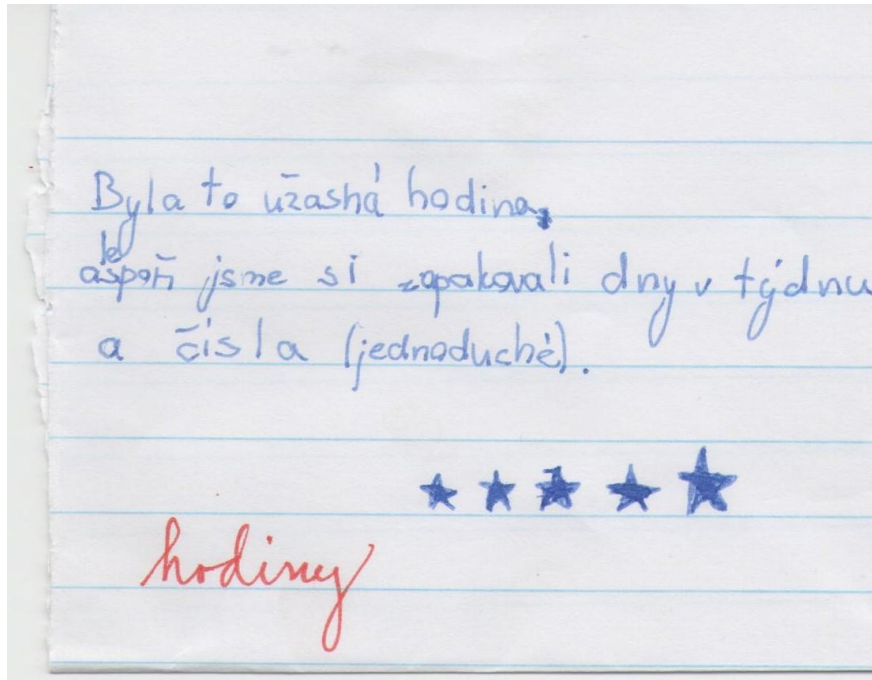 Byla to úžasná hodina,
alespoň jsme si zopakovali dny v týdnu
a čísla (jednoduché).
hodiny